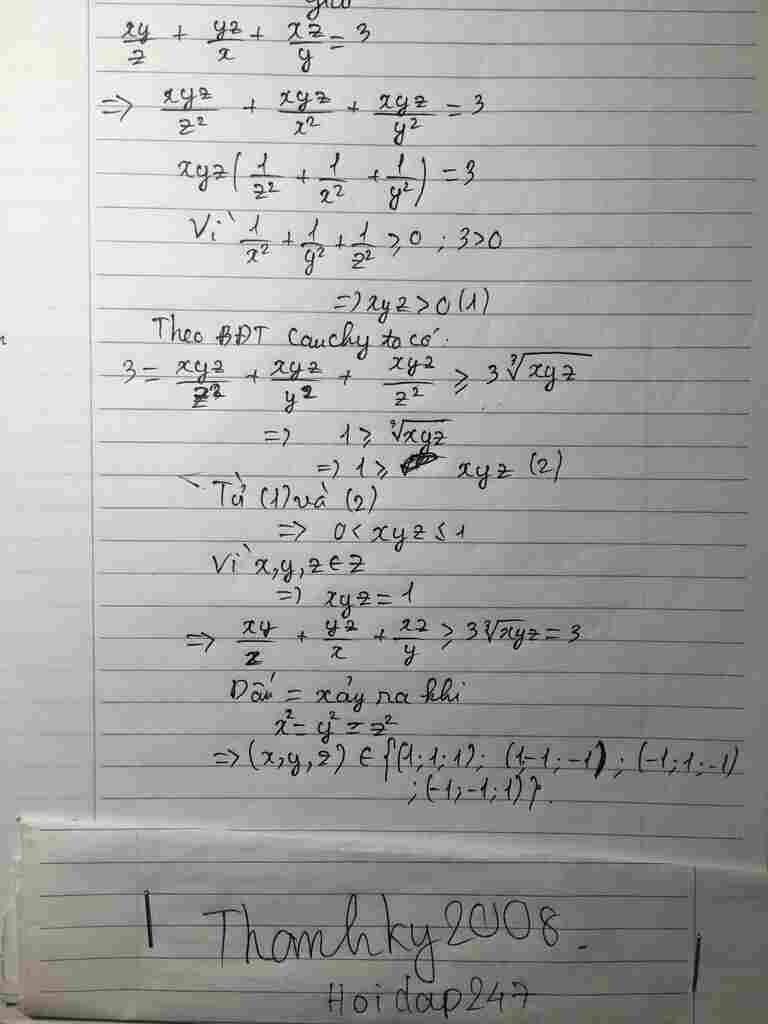 xy/z + yz/x + xz/y = 3
=> xyz/z² + xyz/x² + xyz/y² = 3
xyz(1/z² + 1/x² + 1/y²) = 3
Vì 1/x² + 1/y² + 1/z² ≥ 0 ; 3>0
=> xyz > 0 (1)
Theo BĐT Cauchy ta có.
3 = xyz/z² + xyz/y² + xyz/z² ≥ 3∛xyz
=> 1 ≥ ∛xyz
=> 1 ≥ xyz (2)
Từ (1) và (2)
=> 0 < xyz ≤ 1
Vì x,y,z ∈ Z
=> xyz = 1
=> xy/z + yz/x + xz/y ≥ 3∛xyz = 3
Dấu = xảy ra khi
x² = y² = z²
=> (x,y,z) ∈ {(1;1;1); (1;-1;-1); (-1;1;-1)
;(-1;-1;1)}.
Thanhky2008.
Hoidap247